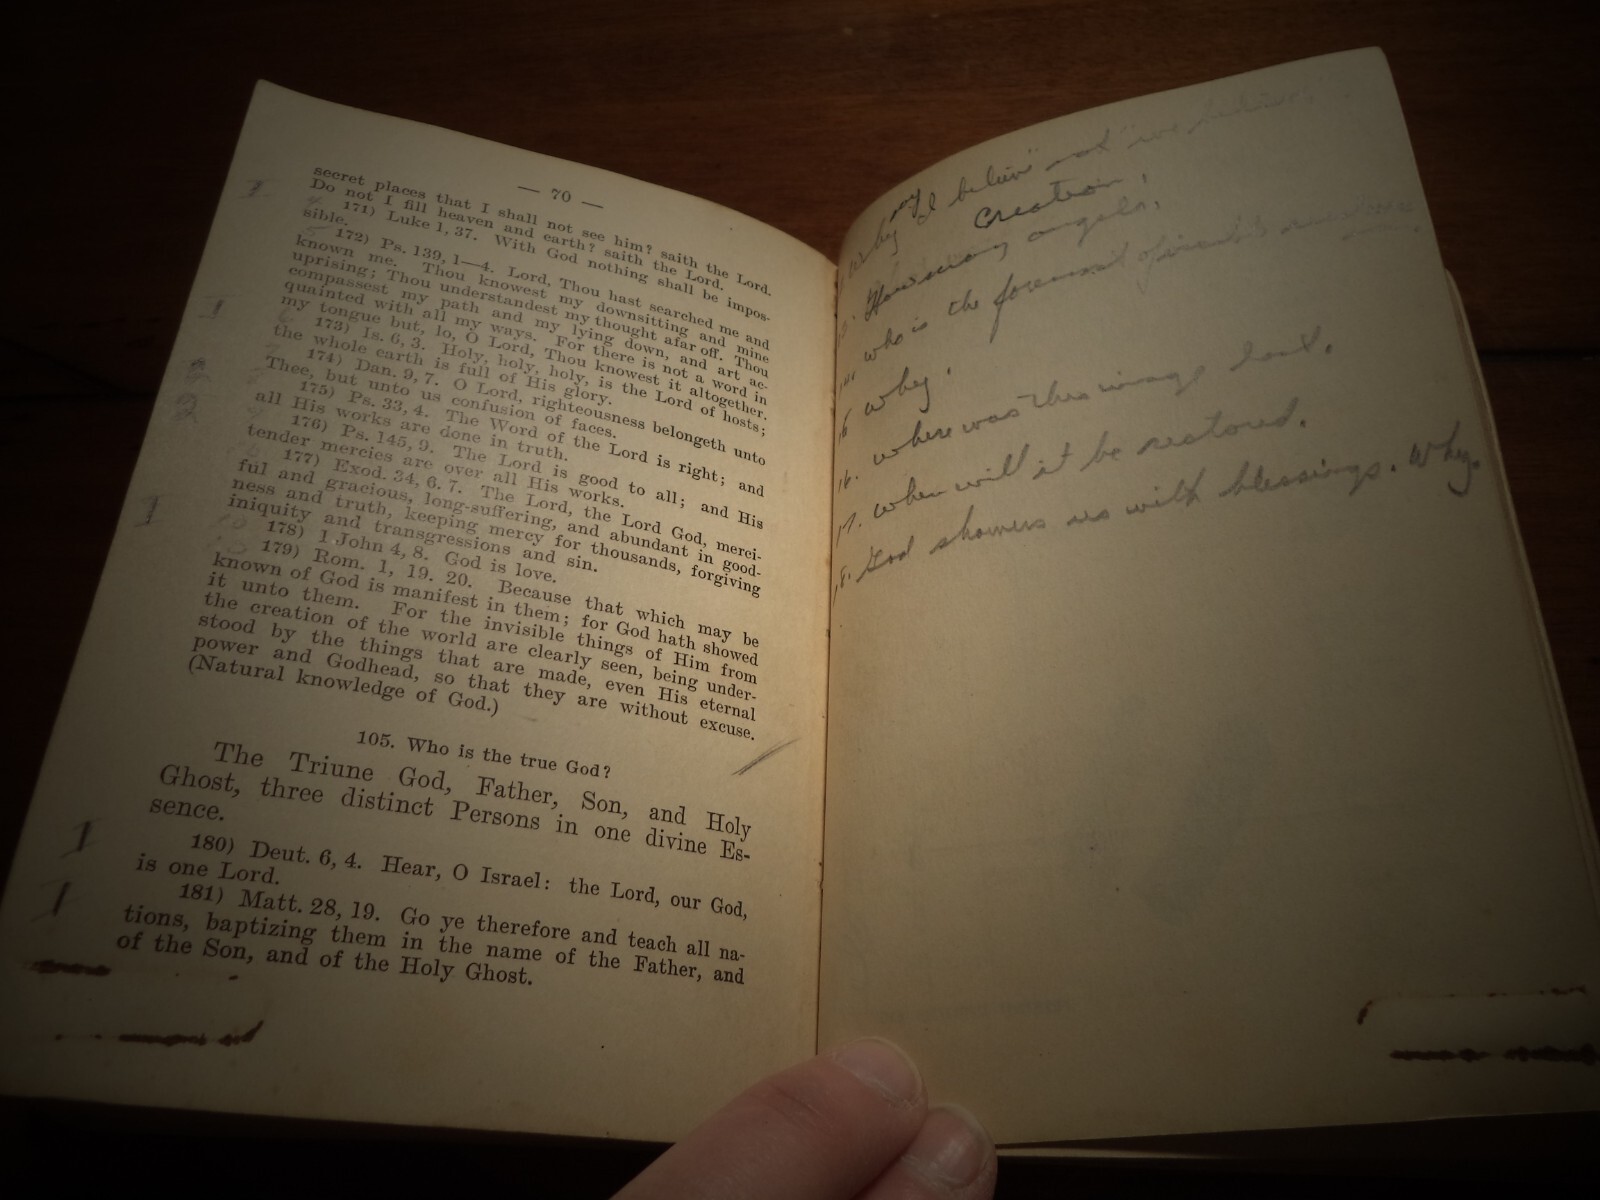 — 70 —
secret places that I shall not see him? saith the Lord.
Do not I fill heaven and earth? saith the Lord.
171) Luke 1, 37. With God nothing shall be impos-
sible.
172) Ps. 139, 1—4. Lord, Thou hast searched me and
known me. Thou knowest my downsitting and mine
uprising; Thou understandest my thought afar off. Thou
compassest my path and my lying down, and art ac-
quainted with all my ways. For there is not a word in
my tongue but, lo, O Lord, Thou knowest it altogether.
173) Is. 6, 3. Holy, holy, holy, is the Lord of hosts;
the whole earth is full of His glory.
174) Dan. 9, 7. O Lord, righteousness belongeth unto
Thee, but unto us confusion of faces.
175) Ps. 33, 4. The Word of the Lord is right; and
all His works are done in truth.
176) Ps. 145, 9. The Lord is good to all; and His
tender mercies are over all His works.
177) Exod. 34, 6. 7. The Lord, the Lord God, merci-
ful and gracious, long-suffering, and abundant in good-
ness and truth, keeping mercy for thousands, forgiving
iniquity and transgressions and sin.
178) 1 John 4, 8. God is love.
179) Rom. 1, 19. 20. Because that which may be
known of God is manifest in them; for God hath showed
it unto them. For the invisible things of Him from
the creation of the world are clearly seen, being under-
stood by the things that are made, even His eternal
power and Godhead, so that they are without excuse.
(Natural knowledge of God.)
105. Who is the true God?
The Triune God, Father, Son, and Holy
Ghost, three distinct Persons in one divine Es-
sence.
180) Deut. 6, 4. Hear, O Israel: the Lord, our God,
is one Lord.
181) Matt. 28, 19. Go ye therefore and teach all na-
tions, baptizing them in the name of the Father, and
of the Son, and of the Holy Ghost.
Why say I believe not "we believe
Creation.
How many angels.
who is the foremost of
15 why.
16. where was this image lost.
17. when will it be restored.
18. God showers us with blessings. Why.